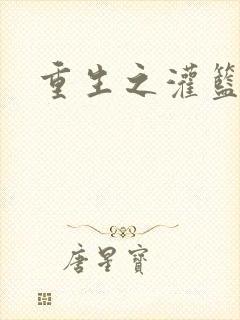 重生之灌籃
唐星寶